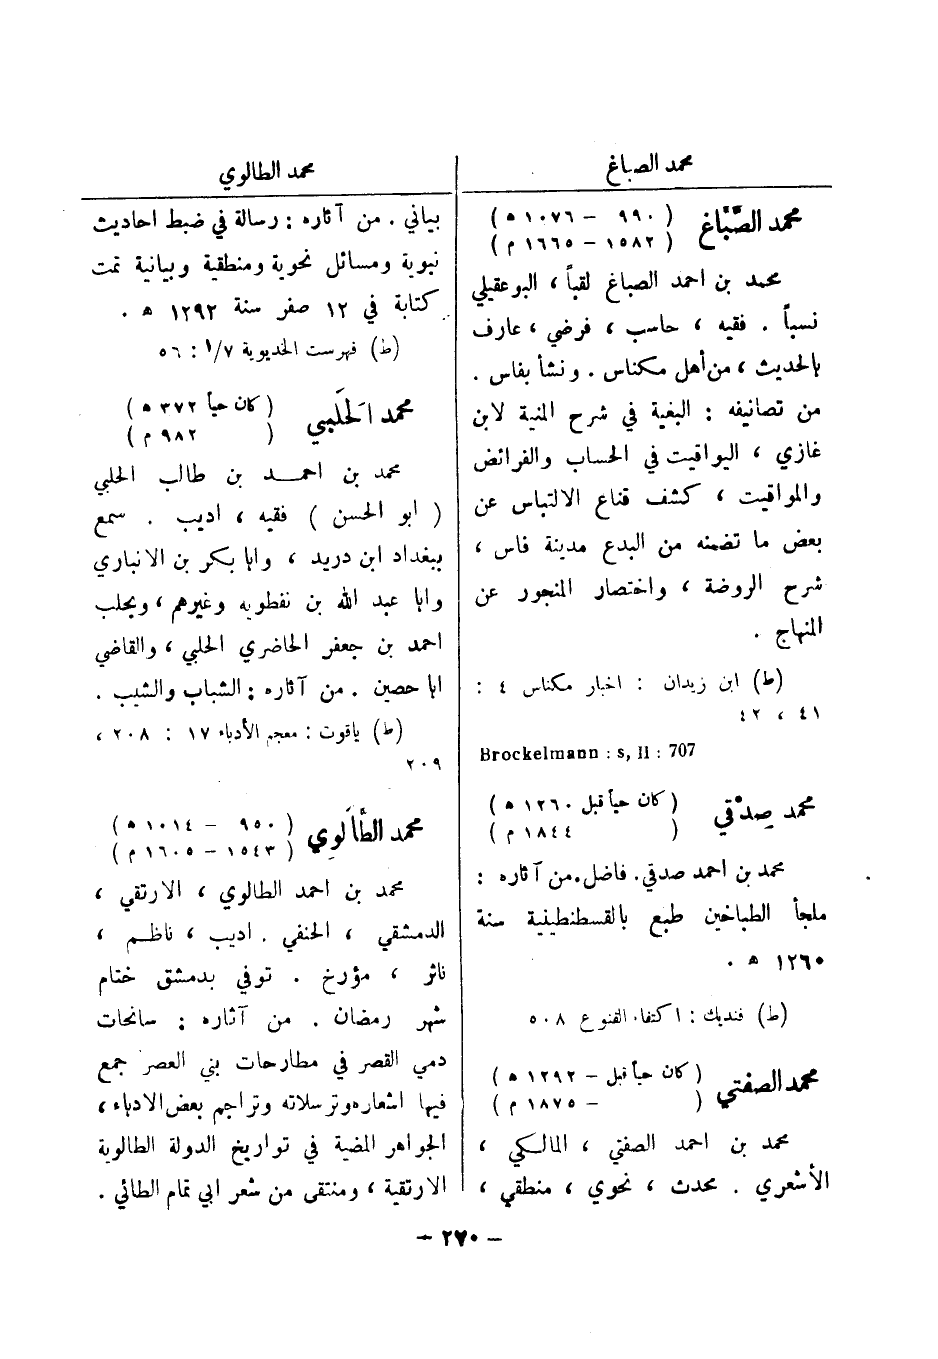 محمد الصباغ
محمد الصَّبَّاغ ( ٩٩٠ – ١٠٧٦ ه )
( ١٥٨٢ – ١٦٦٥ م )
محمد بن احمد الصباغ لقباً ، البوعقيلي
نسباً . فقيه ، حاسب ، فرضي ، عارف
بالحديث ، من أهل مكناس . ونشأ بفاس .
من تصانيفه : البغية في شرح المنية لابن
غازي ، اليواقيت في الحساب والفرائض
والمواقيت ، كشف قناع الالتباس عن
بعض ما تضمنه من البدع مدينة فاس ،
شرح الروضة ، واختصار المنجور عن
المنهاج .
(ط) ابن زيدان : اخبار مكناس ٤ :
٤١ ، ٤٢
Brockelmann : s, II : 707
محمد صِدْقي ( كان حياً قبل ١٢٦٠ ه )
( ١٨٤٤ م )
محمد بن احمد صدقي . فاضل . من آثاره :
ملجأ الطباخين طبع بالقسطنطينية سنة
١٢٦٠ ه .
(ط) فنديك : اكتفاء القنوع ٥٠٨
محمد الصفتي ( كان حياً قبل – ١٢٩٢ ه )
( – ١٨٧٥ م )
محمد بن احمد الصفتي ، المالكي ،
الأشعري . محدث ، نحوي ، منطقي ،
محمد الطالوي
بياني . من آثاره : رسالة في ضبط احاديث
نبوية ومسائل نحوية ومنطقية وبيانية تمت
كتابة في ١٢ صفر سنة ١٢٩٢ ه .
(ط) فهرست الخديوية ٧/١ : ٥٦
محمد الحَلَبي ( كان حياً ٣٧٢ ه )
( ٩٨٢ م )
محمد بن احمد بن طالب الحلبي
( ابو الحسن ) فقيه ، اديب . سمع
ببغداد ابن دريد ، وابا بكر بن الانباري
وابا عبد الله بن نفطويه وغيرهم ، وبحلب
احمد بن جعفر الحاضري الحلبي ، والقاضي
ابا حصين . من آثاره : الشباب والشيب .
(ط) ياقوت : معجم الأدباء ١٧ : ٢٠٨ ،
٢٠٩
محمد الطَّالَوِي ( ٩٥٠ – ١٠١٤ ه )
( ١٥٤٣ – ١٦٠٥ م )
محمد بن احمد الطالوي ، الارتقي ،
الدمشقي ، الحنفي . اديب ، ناظم ،
ناثر ، مؤرخ . توفي بدمشق ختام
شهر رمضان . من آثاره : سانحات
دمى القصر في مطارحات بني العصر جمع
فيها اشعاره وترسلاته وتراجم بعض الادباء ،
الجواهر المضية في تواريخ الدولة الطالوية
الارتقية ، ومنتقى من شعر ابي تمام الطائي .
– ٢٧٠ –